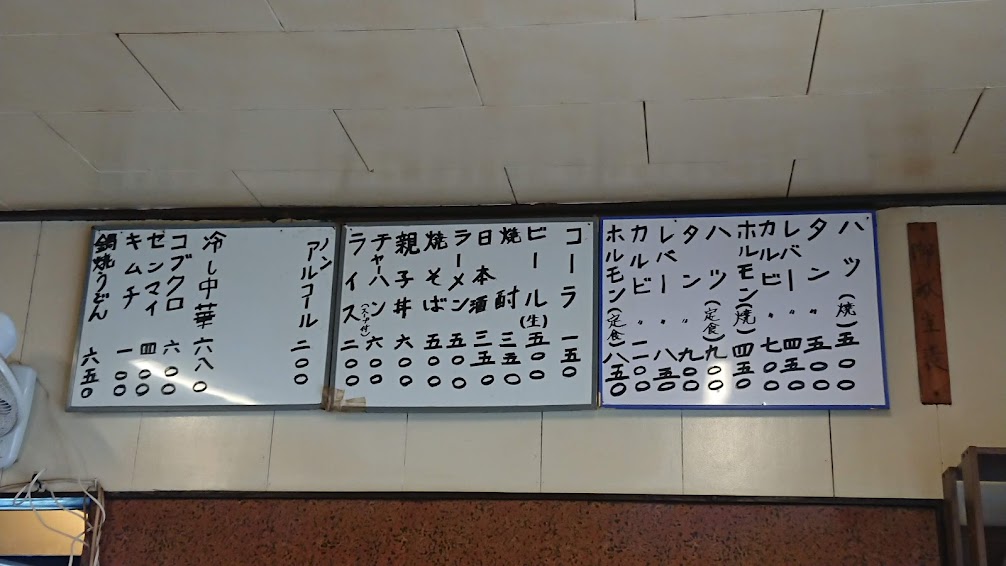 ハツ(焼)五〇〇
タン〃五〇〇
レバー〃四五〇
カルビー〃七〇〇
ホルモン(焼)四五〇
ハツ(定食)九〇〇
タン〃九〇〇
レバー〃八五〇
カルビー〃一一〇〇
ホルモン(定食)八五〇
コーラ一五〇
ビール(生)五〇〇
焼酎三五〇
日本酒三五〇
ラーメン五〇〇
焼そば五五〇
親子丼六〇〇
チャーハン六〇〇
ライス二〇〇
ノン
アルコール二〇〇
冷し中華六八〇
コブクロ六〇〇
センマイ四〇〇
キムチ一〇〇
鍋焼うどん六五〇